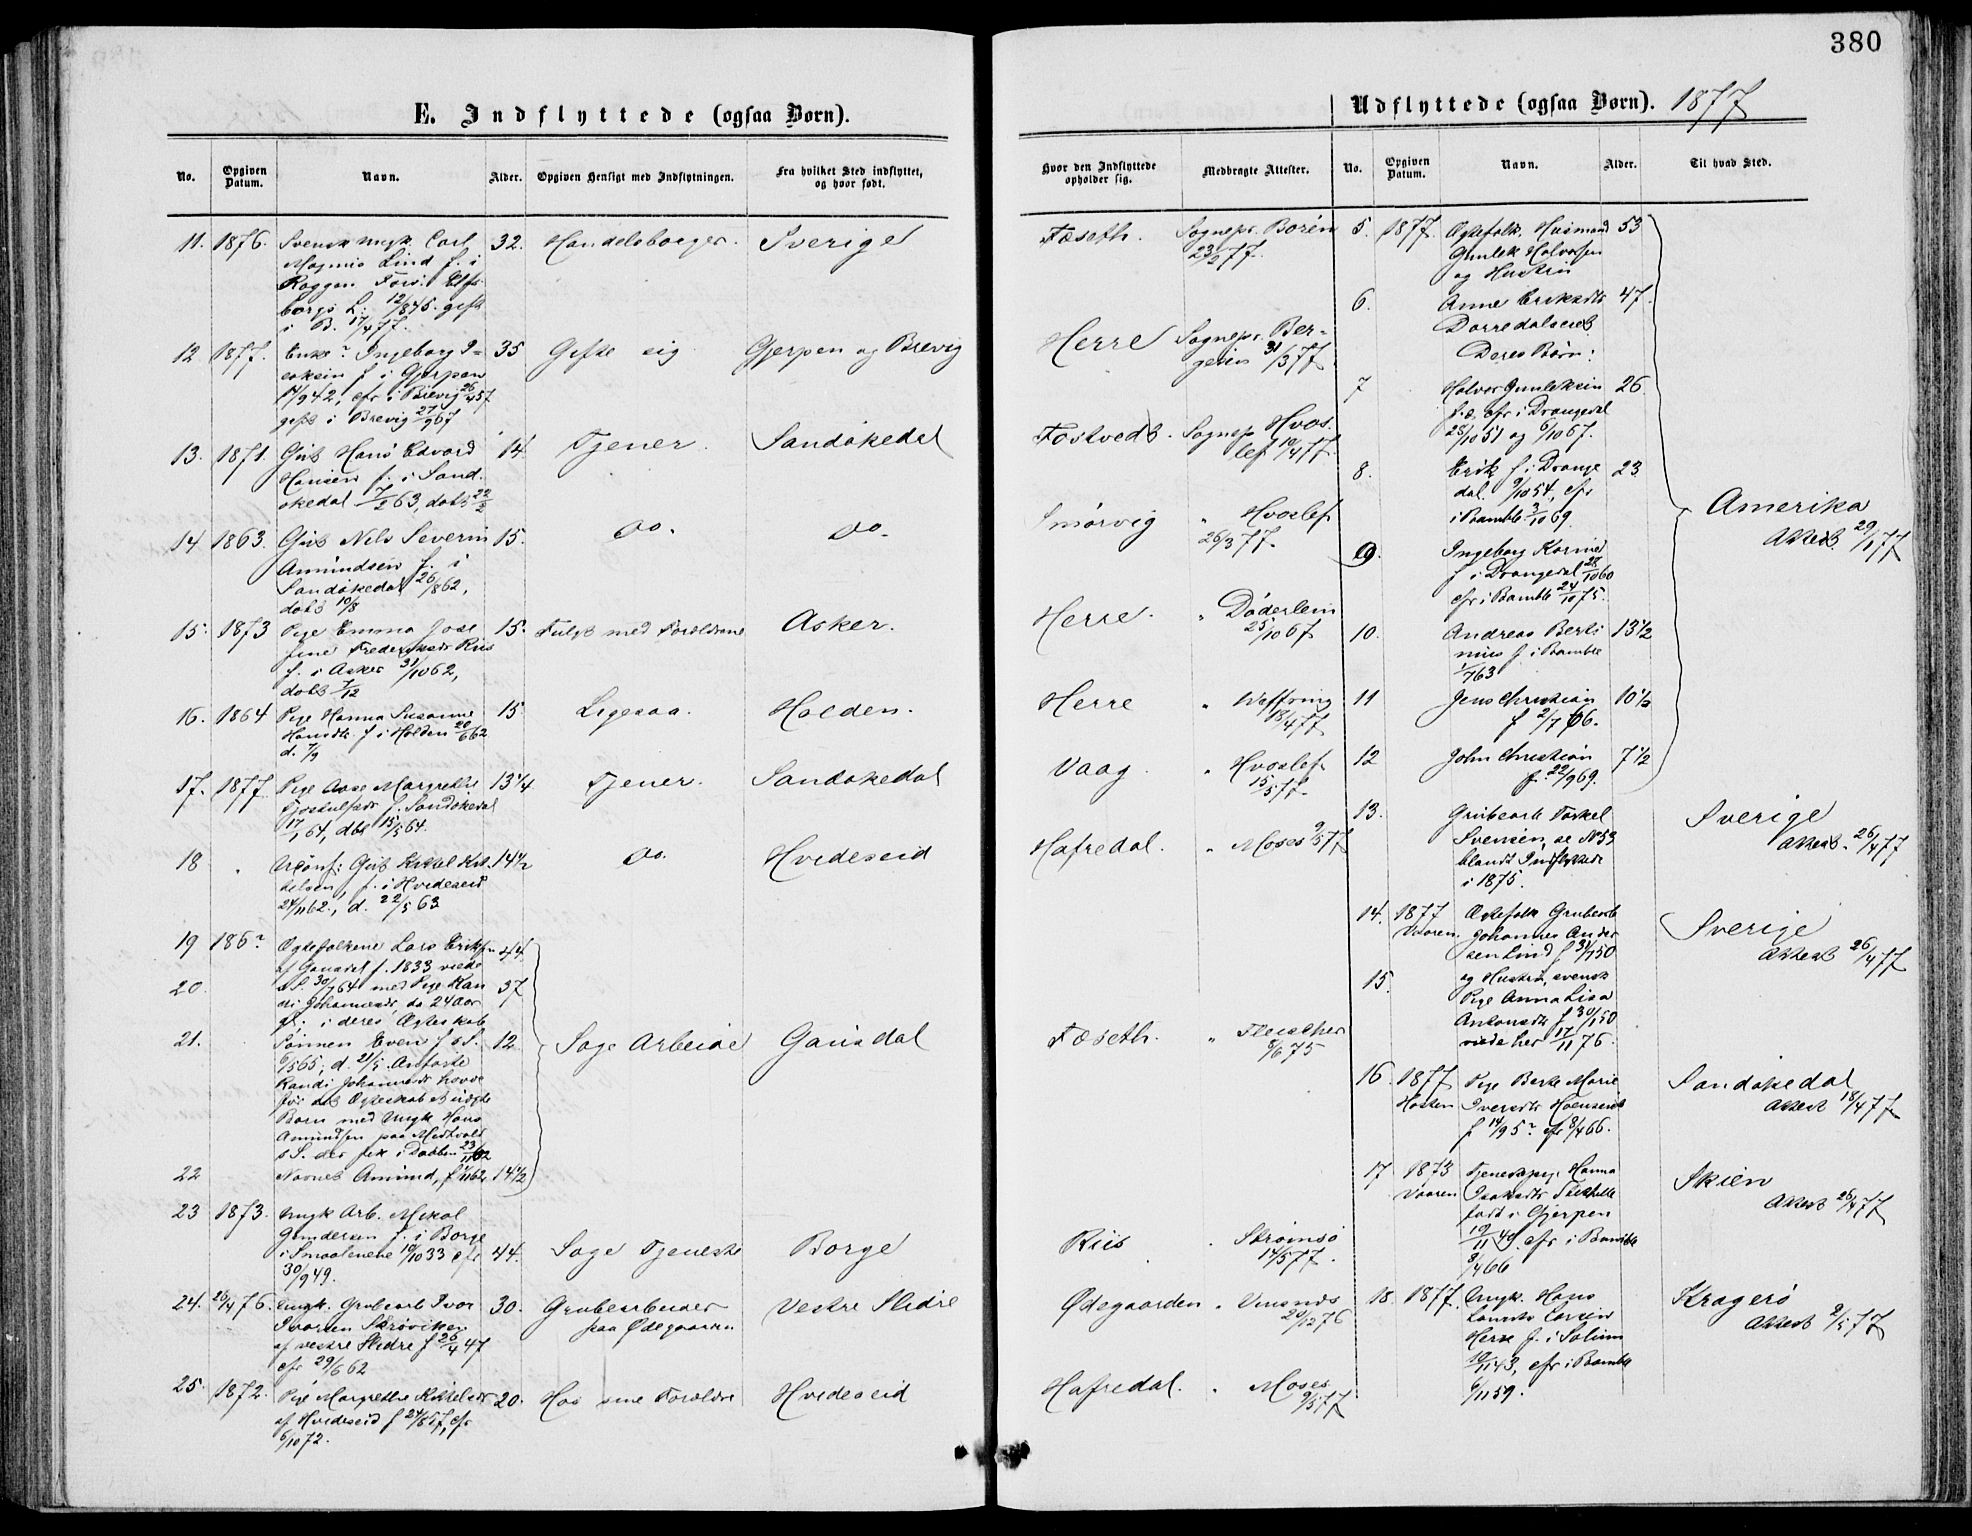 380
E. Indflyttede (ogsaa Børn).
No.
Opgiven Datum.
Navn.
Alder.
Opgiven Hensigt med Indflytningen.
Fra hvilket Sted indflyttet, og hvor født.
11. 1876. Svensk ungk. Carl 32. Handelsborger. Sverige
Magnus Lind f. i
Roggen Fors. Elfs-
borgs L. 12/8 45. gift
i B. 17/4 77.
12 1877. Enke Ingeborg I- 35 Gifte sig Gjerpen og Brevig
f. i Gjerpen
42, cfr i Brevig 26/4 57
gift i Brevig 27/9 67
13. 1871. Gut Hans Edvard 14. Tjener. Sandøkedal
Hansen f. i Sand-
økedal 7/2 63, døbt 22/2
14 1863. Gut Nils Severin 15. do. do.
Amundsen f. i
Sandøkedal 26/8 62,
døbt 10/8
15. 1873 Pige Emma Jose 15. Fulgt med Forældrene Asker.
fine Fredriksdr Riis
f. i Asker 31/10 62,
døbt 7/12
16. 1864 Pige Hanna Susanne 15 Ligesaa. Holden.
Hansdtr. f i Holden 20/6 62
d. 7/9
17. 1877 Pige Aase Margrethe 13 1/4 Tjener. Sandøkedal
f. Sandøkedal
17/1 64, døbt 15/5 64.
18 " Ukonf: Gut Kittel Kit- 14 1/2 do. Hvideseid
telsen, f. i Hvideseid
24/11 62, d. 22/5 63
19 186? Ægtefolkene Lars Eriksen 44
af Gausdal f. 1833 viede
20 30/7 64 med Pige Ran 37
di Johannesdr, da 24 Aar
gl; i deres Ægteskab
21. Sønnen Even f. s. S. 12 Søge Arbeide Gausdal
6/5 65, d. 21/5. Anførte
Randi Johannesdr havde
før det Ægteskab et uægte
Barn med Ungk Hans
Amundsen paa
s. S. der fik i Daaben
22 Navnet Amund, f. 62. 14 1/2
23 1873. Ungk Arb. Mikal
Gundersen f. i Borge
i Smaalenene 10/10 33 cfr 44. Søge Tjeneste Borge
30/9 49.
24. 26/4 76. Ungk. Grubearb Ivar 30. Grubearbeider Vestre Slidre
Ivarsen Strøviken paa Ødegaarden
af vestre Slidre f 26/4 47
cfr 29/6 62
25. 1872. Pige Margrethe Kittelsdr 20. Hos sine Forældre Hvideseid
af Hvideseid f 24/8 57, cfr
6/10 72.
Hvor den Indflyttede opholder sig.
Medbragte Attester.
Foseth. Sognepr. Borén
23/2 77.
Herre Sognepr. Ber-
31/3 77
Tostvedt. Sognep Hvos-
lef 10/4 77
Smørvig " Hvoslef
26/3 77.
Herre. " Døderlein
25/10 67
Herre "
18/4 77
Vaag " Hvoslef
15/5 77.
Hafredal. " Moses 9/5 77
Foseth. " Fleischer
8/6 75
Riis " Strømsø
14/5 77.
Ødegaarden "
20/12 76
Hafredal. " Moses
9/5 77
Udflyttede (ogsaa Børn). 1877
No.
Opgiven Datum.
Navn.
Alder.
Til hvad Sted.
5. 1877. Ægtefolk. Husmand 53
Gunlek Halvorsen
og Hustru
6. Anne Eriksdtr 47.
Dorredalseiet
Deres Børn:
7 Halvor Gunleksen 26
f. o. cfr i Drangedal
28/10 51 og 6/10 67.
8. Erik f i Drange 23
dal 9/10 54, cfr
i Bamble 3/10 69.
9. Ingeborg Karine
f i Drangedal 28/10 60
cfr i Bamble 24/10 75.
Amerika
Attest 29/1 77
10. Andreas Berti 13 1/2
nius f i Bamble
1/7 63
11 Jens Christian 10 1/2
f 2/7 66.
12 John Christian 7 1/2
f. 22/9 69.
13. Grubearb Torkel Sverige
Svensen, se No 53 Attest. 26/4 77
blandt Indflyttede
i 1875.
14. 1877 Ægtefolk Grubearb Sverige
Vaaren. Johannes Ander Attest 26/4 77
sen Lind f 31/1 50
15. og Hustru, svensk
Pige Anna Lisa
Antonsdtr f 30/1 50
viede her 17/11 76.
16 1877 Pige Berte Marie Sandøkedal
Høsten Iversdtr Attest 18/4 77
f 14/9 5? cfr 8/4 66.
17 1873 Tjenestepige Hanna Skien
Vaaren Isaksdtr Attest 26/4 77
født i Gjerpen
10/11 49 cfr i Bamble
8/4 66
18. 1877. Ungk. Hans Kragerø
Larsen Attest 2/5 77
Herre f. i Solum
10/11 43, cfr i Bamble
6/11 59.